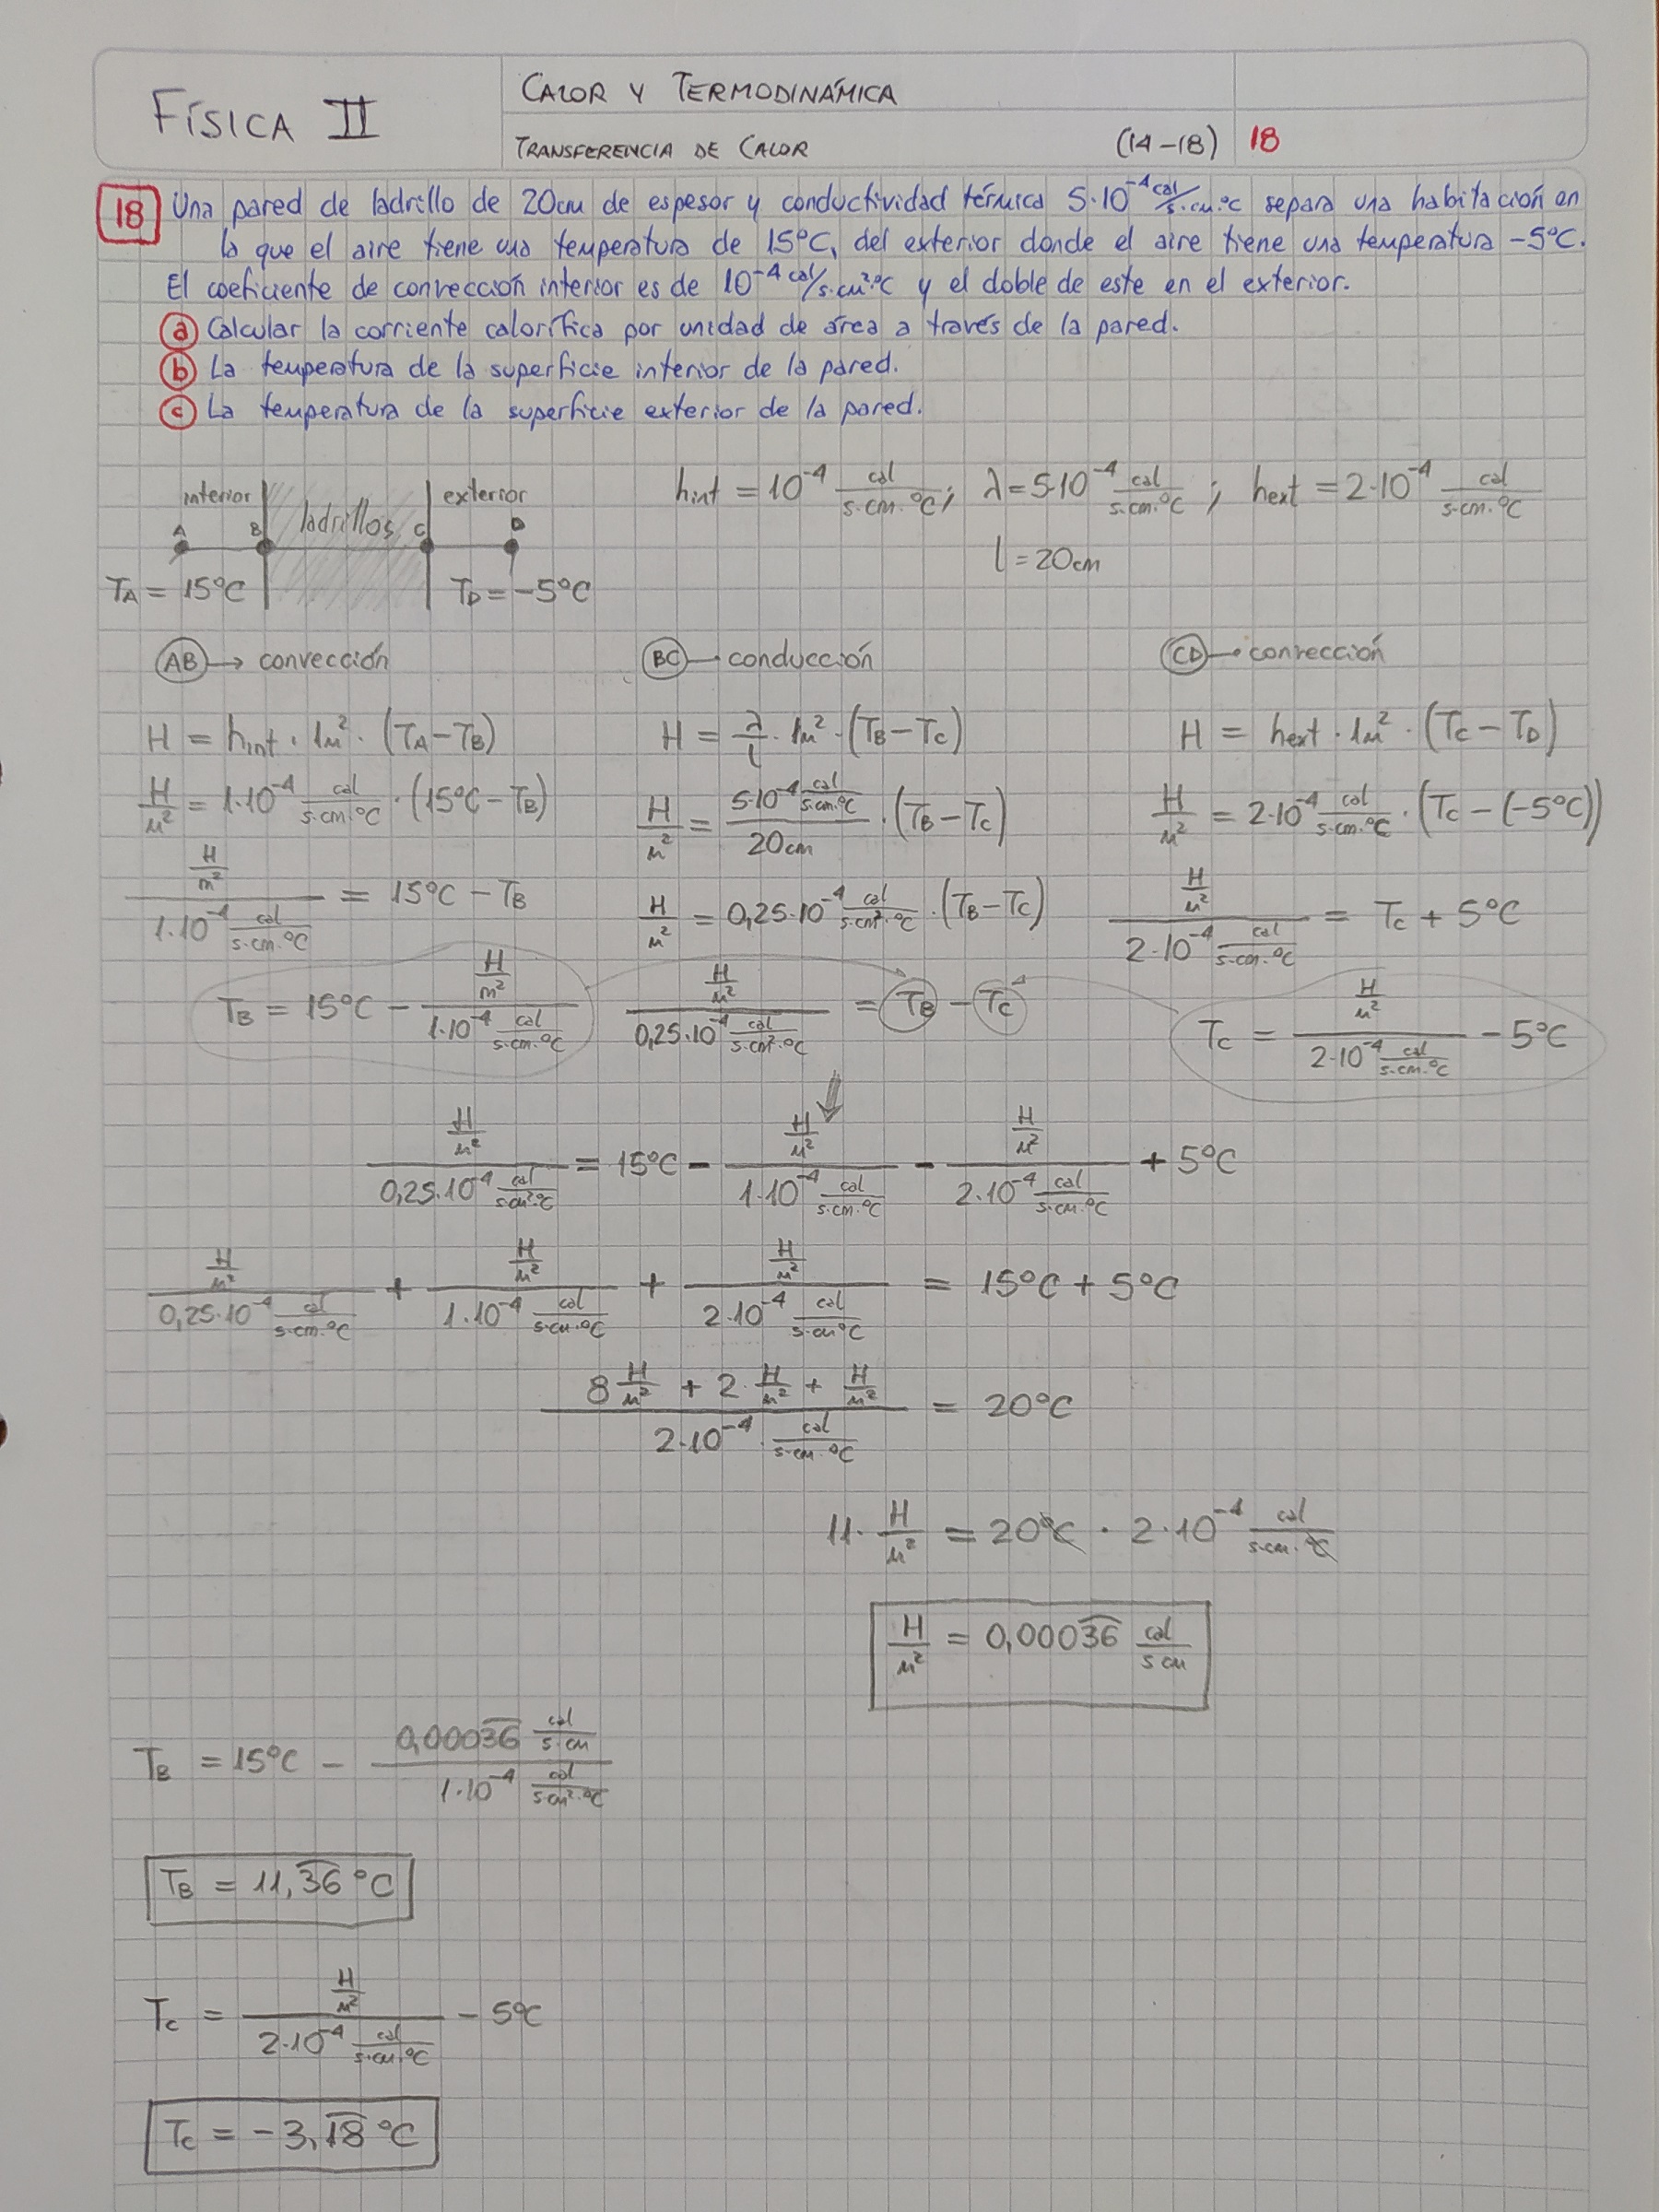 FÍSICA II
CALOR Y TERMODINÁMICA
TRANSFERENCIA DE CALOR (14-18) 18
18 Una pared de ladrillo de 20cm de espesor y conductividad térmica 5·10⁻⁴ cal/s·cm·ºC separa una habitación en
la que el aire tiene una temperatura de 15ºC, del exterior donde el aire tiene una temperatura -5ºC.
El coeficiente de convección interior es de 10⁻⁴ cal/s·cm²·ºC y el doble de este en el exterior.
a Calcular la corriente calorífica por unidad de área a través de la pared.
b La temperatura de la superficie interior de la pared.
c La temperatura de la superficie exterior de la pared.
interior ladrillos exterior
A B C D
T_A = 15ºC T_D = -5ºC
h_int = 10⁻⁴ cal/s·cm·ºC ; λ = 5·10⁻⁴ cal/s·cm·ºC ; h_ext = 2·10⁻⁴ cal/s·cm·ºC
l = 20cm
AB → convección BC → conducción CD → convección
H = h_int · 1m² · (T_A - T_B) H = λ/l · 1m² · (T_B - T_C) H = h_ext · 1m² · (T_C - T_D)
H/m² = 1·10⁻⁴ cal/s·cm·ºC · (15ºC - T_B) H/m² = 5·10⁻⁴ cal/s·cm·ºC / 20cm · (T_B - T_C) H/m² = 2·10⁻⁴ cal/s·cm·ºC · (T_C - (-5ºC))
H/m² / 1·10⁻⁴ cal/s·cm·ºC = 15ºC - T_B H/m² = 0,25·10⁻⁴ cal/s·cm²·ºC · (T_B - T_C) H/m² / 2·10⁻⁴ cal/s·cm·ºC = T_C + 5ºC
T_B = 15ºC - H/m² / 1·10⁻⁴ cal/s·cm·ºC H/m² / 0,25·10⁻⁴ cal/s·cm²·ºC = T_B - T_C T_C = H/m² / 2·10⁻⁴ cal/s·cm·ºC - 5ºC
H/m² / 0,25·10⁻⁴ cal/s·cm²·ºC = 15ºC - H/m² / 1·10⁻⁴ cal/s·cm·ºC - H/m² / 2·10⁻⁴ cal/s·cm·ºC + 5ºC
H/m² / 0,25·10⁻⁴ cal/s·cm·ºC + H/m² / 1·10⁻⁴ cal/s·cm·ºC + H/m² / 2·10⁻⁴ cal/s·cm·ºC = 15ºC + 5ºC
8 H/m² + 2· H/m² + H/m² / 2·10⁻⁴ · cal/s·cm·ºC = 20ºC
11· H/m² = 20ºC · 2·10⁻⁴ cal/s·cm·ºC
H/m² = 0,00036̅ cal/s cm
T_B = 15ºC - 0,00036̅ cal/s·cm / 1·10⁻⁴ cal/s·cm²·ºC
T_B = 11,3̅6̅ ºC
T_C = H/m² / 2·10⁻⁴ cal/s·cm·ºC - 5ºC
T_C = -3,1̅8̅ ºC